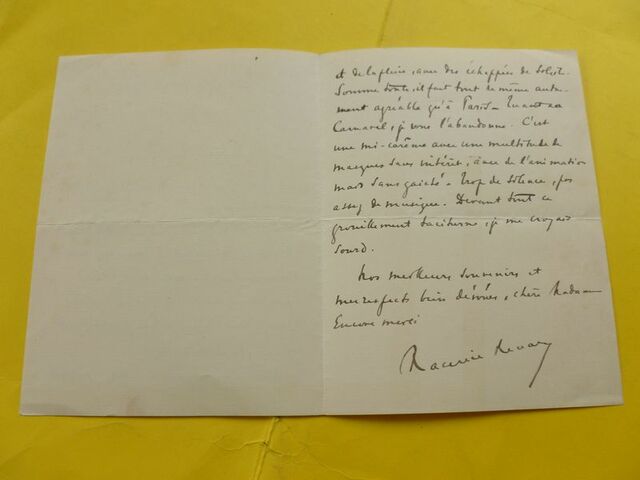 et de la pluie, avec des échappées de soleil.
Somme toute, il fait tout de même autre-
ment agréable qu'à Paris — Quant au
Carnaval, je vous l'abandonne. C'est
une mi-carême avec une multitude de
masques sans intérêt, avec de l'animation
mais sans gaieté — trop de silence, pas
assez de musique. Devant tout ce
grouillement taciturne, je me croyais
sourd.
Nos meilleurs souvenirs et
mes respects bien dévoués, chère Madame
Encore merci
Maurice